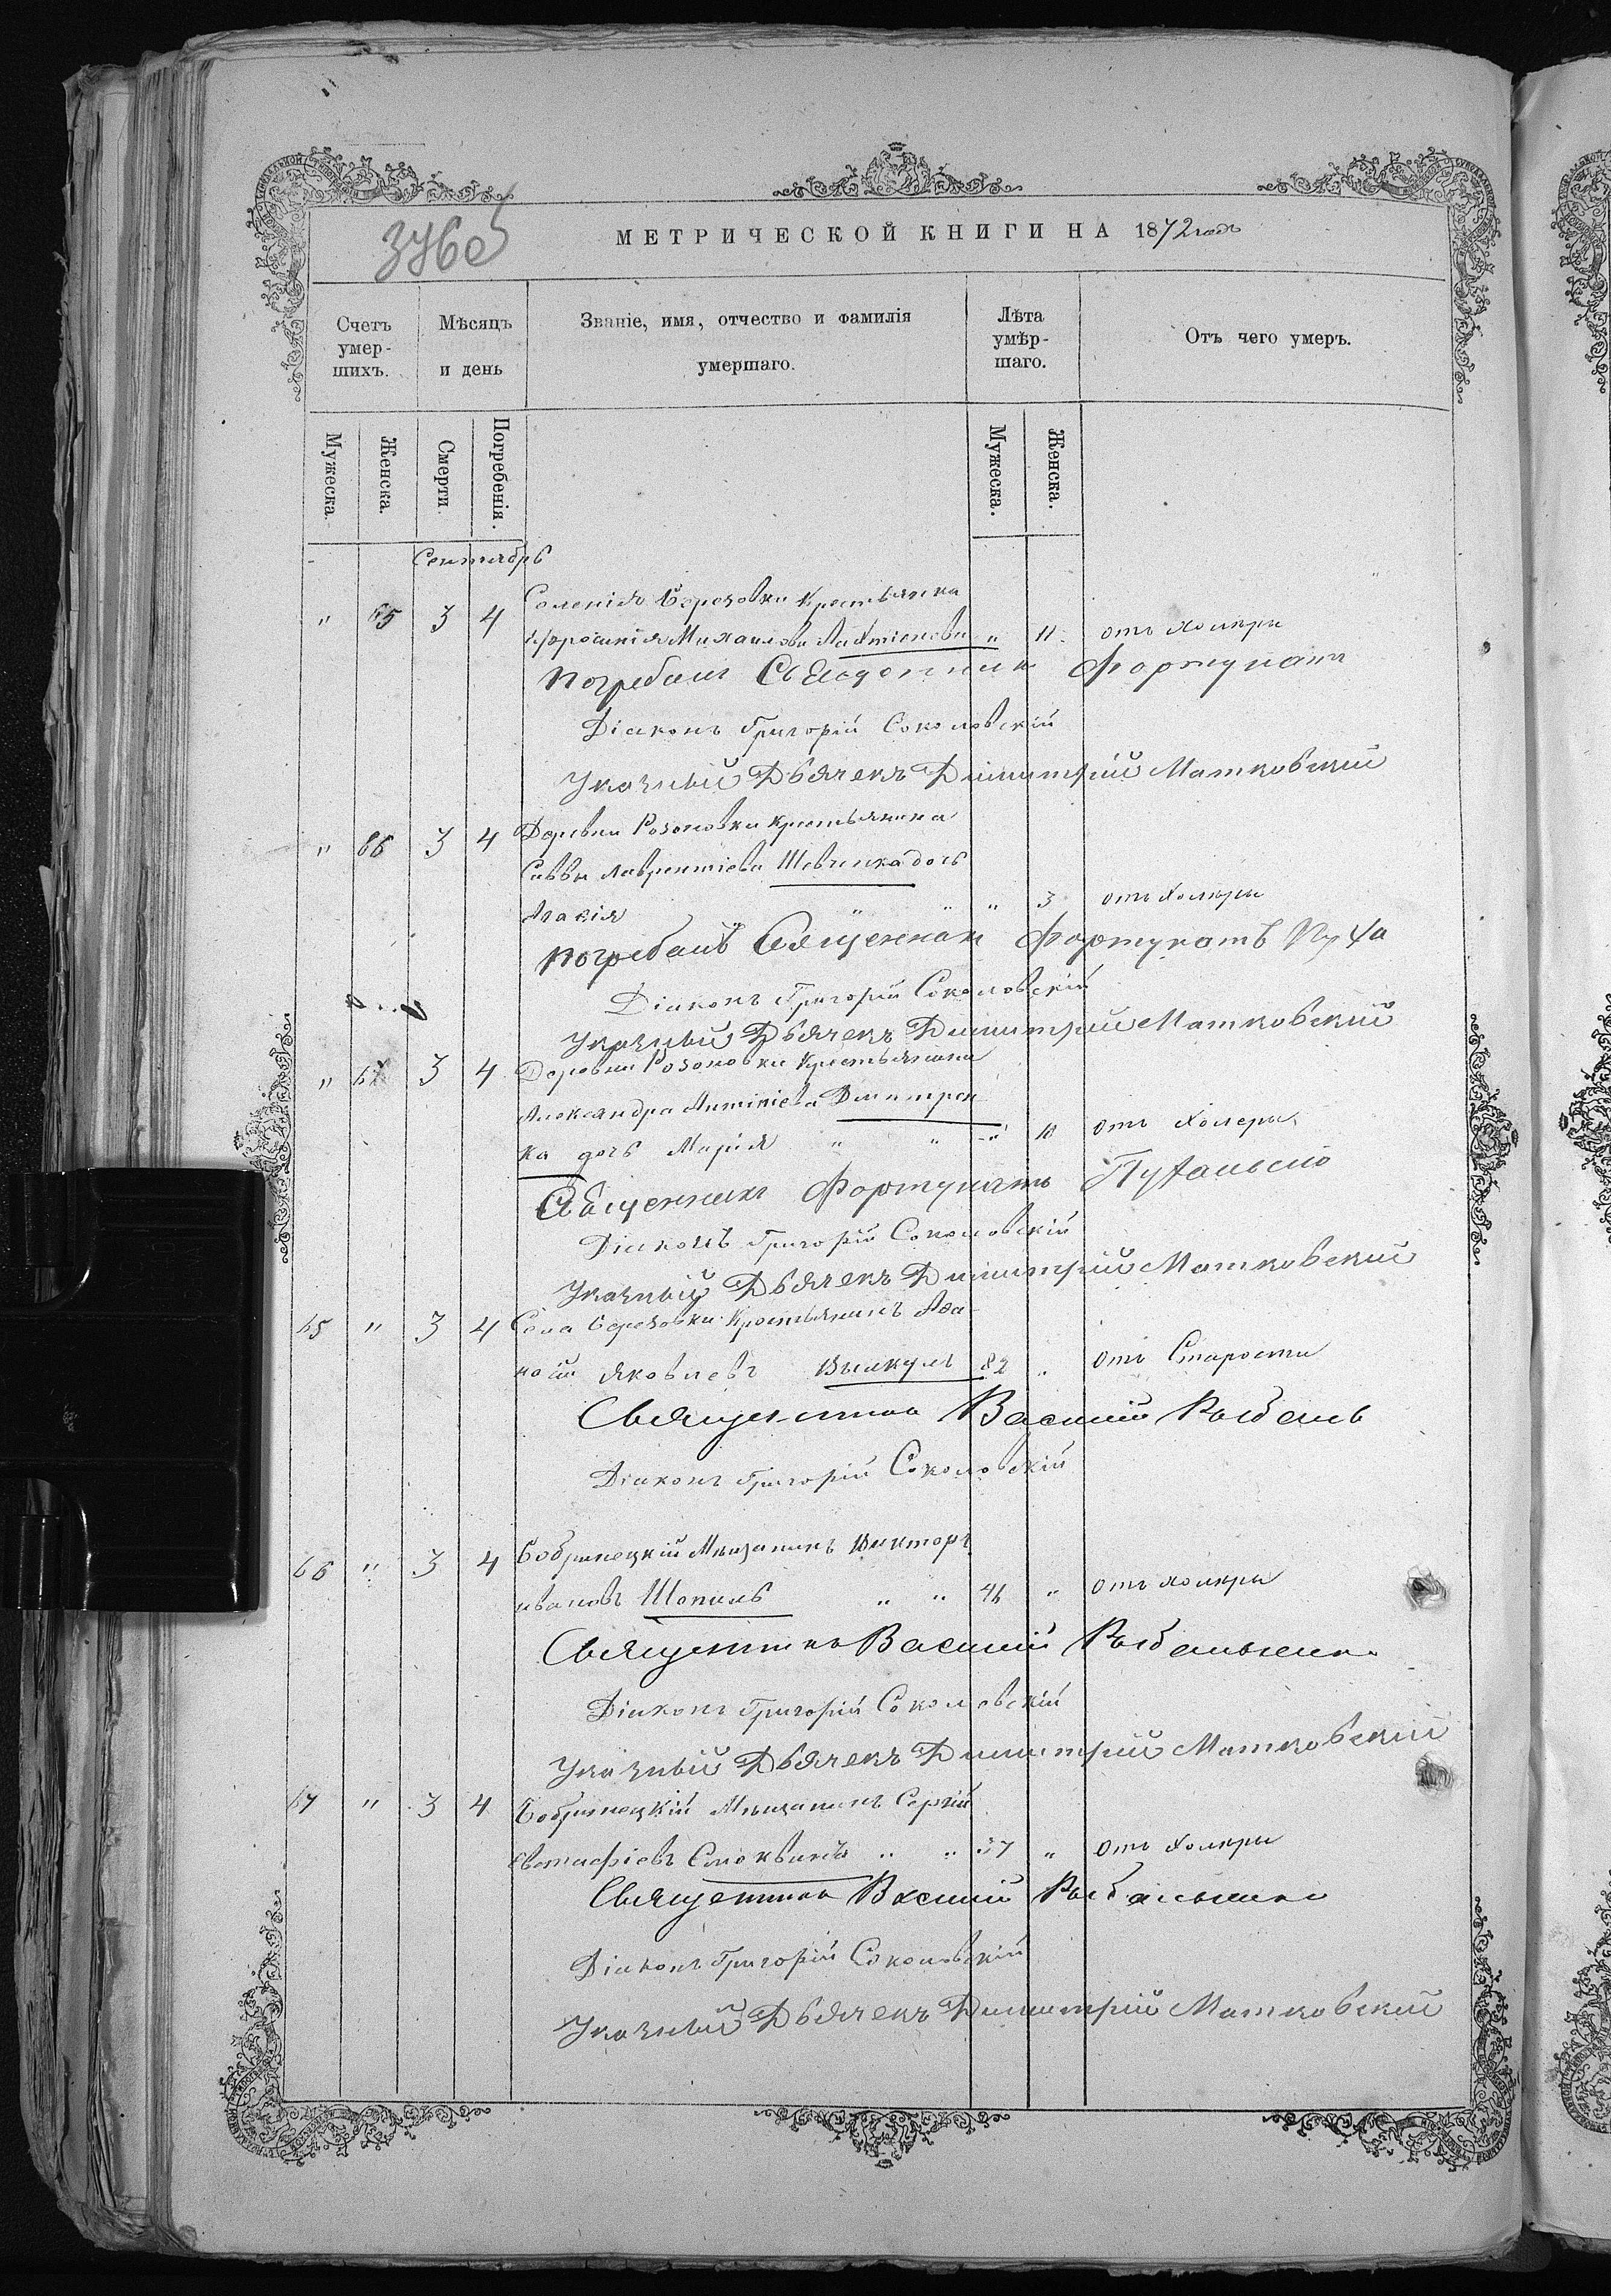 МЕТРИЧЕСКОЙ КНИГИ НА 1872 годъ
Счетъ умер- шихъ.
Мѣсяцъ и день
Званіе, имя, отчество и фамилія умершаго.
Лѣта умѣр- шаго.
Отъ чего умеръ.
Мужеска.
Женска.
Смерти.
Погребенія.
Мужеска.
Женска.
Сентябрь
" 65 3 4 Березовки крестьянка
Михаилова " 11 отъ холеры
Погребалъ Священникъ Фортунатъ
Діаконъ Григорій Соколовскій
Указный Дьячекъ Димитрій Матковскій
" 66 3 4 Деревни крестьянина
Саввы Лаврентіева Шевченка дочь
" " " 3 отъ холеры
погребалъ Священникъ Фортунатъ
Діаконъ Григорій Соколовскій
Указный Дьячекъ Димитрій Матковскій
" 67 3 4 Деревни крестьянина
Александра Дмитрен
ка дочь Марія " " " 10 отъ холеры
Священникъ Фортунатъ
Діаконъ Григорій Соколовскій
Указный Дьячекъ Димитрій Матковскій
65 " 3 4 Села Березовки крестьянинъ
Яковлевъ 82 " отъ Старости
Священникъ Василій
Діаконъ Григорій Соколовскій
66 " 3 4 Бобринецкій Мѣщанинъ Викторъ
Ивановъ " " 46 " отъ холеры
Священникъ Василій
Діаконъ Григорій Соколовскій
Указный Дьячекъ Димитрій Матковскій
67 " 3 4 Бобринецкій Мѣщанинъ Сергій
Евстафіевъ " " 37 " отъ холеры
Священникъ Василій
Діаконъ Григорій Соколовскій
Указный Дьячекъ Димитрій Матковскій